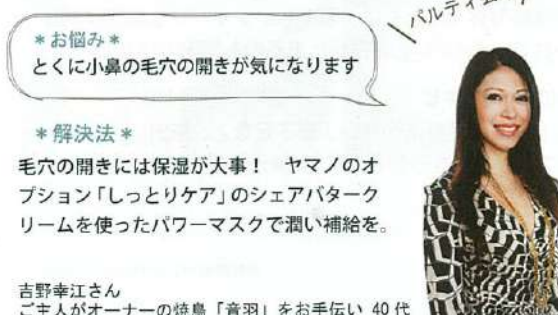 パルティ
＊お悩み＊
とくに小鼻の毛穴の開きが気になります
＊解決法＊
毛穴の開きには保湿が大事！　ヤマノのオ
プション「しっとりケア」のシェアバターク
リームを使ったパワーマスクで潤い補給を。
吉野幸江さん
ご主人がオーナーの焼鳥「音羽」をお手伝い 40代